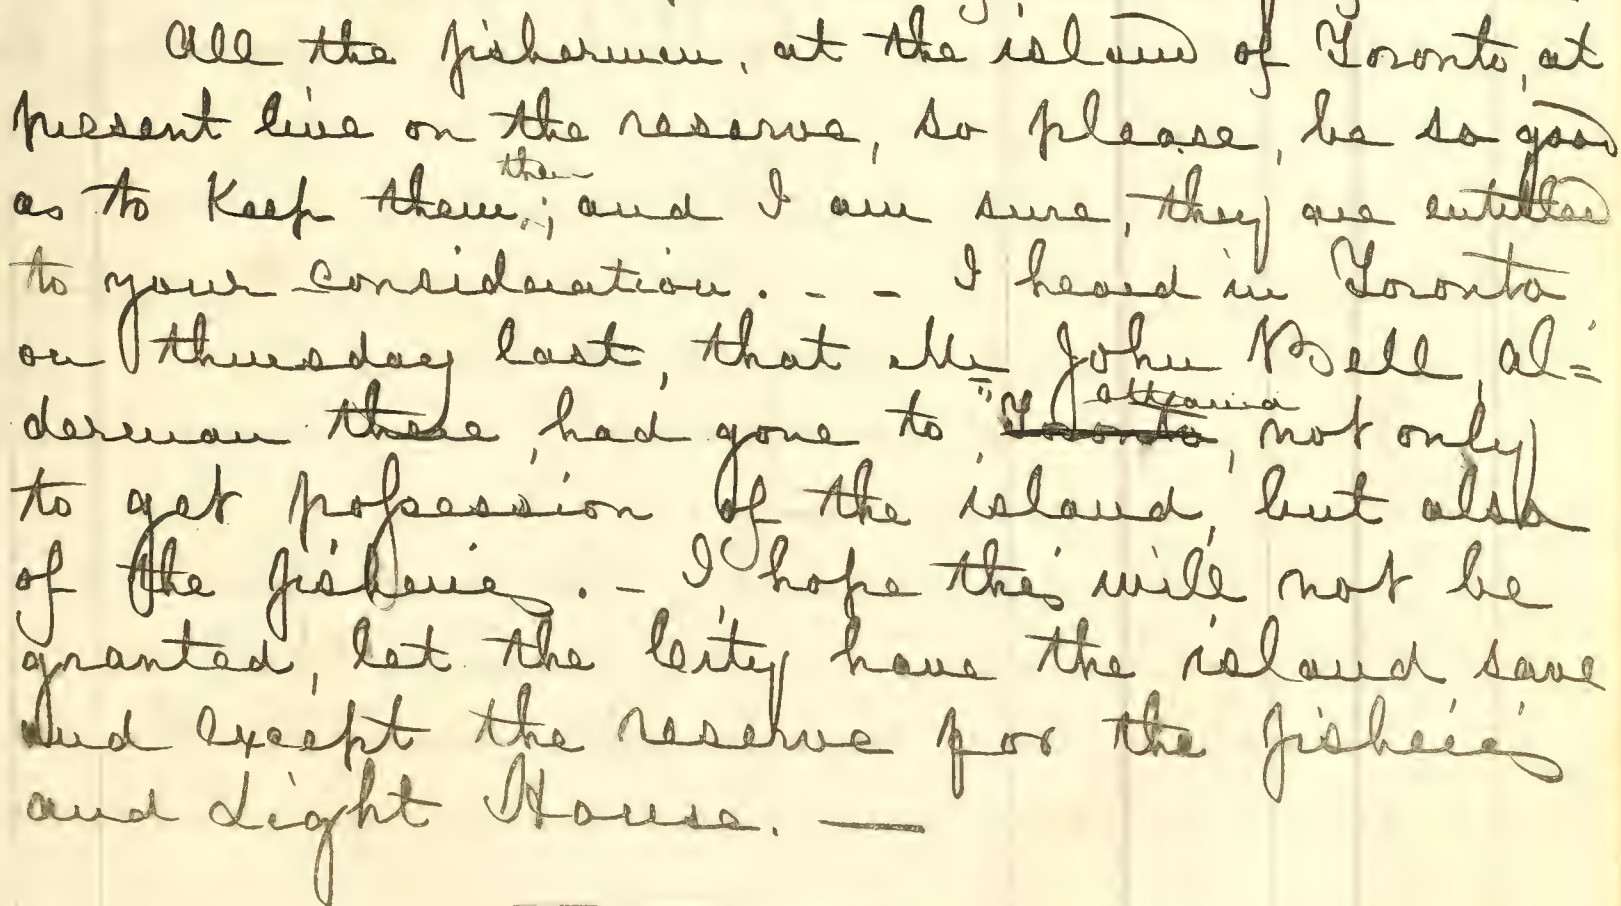 All the fishermen, at the island of Toronto, at
present live on the reserve, so please, be so good
as to Keep them there; and I am sure, they are entitled
to your consideration. - - I heard in Toronto
on thursday last, that Mr John Bell, al=
derman there, had gone to "Toronto Ottawa, not only
to get possession of the island, but also
of the fisheries. - I hope this will not be
granted, let the City have the island save
and except the reserve for the fisheries
and Light House. —